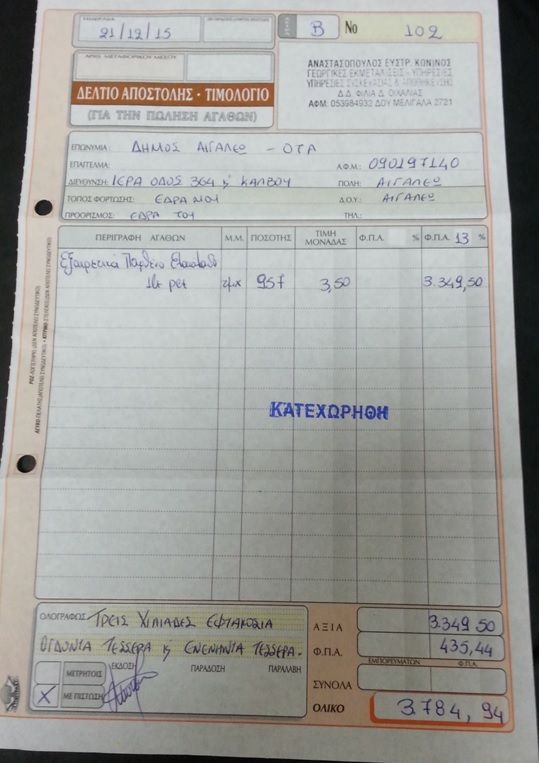 ΗΜΕΡΟΜΗΝΙΑ
21/12/15
ΣΕΙΡΑ B № 102
ΑΡΙΘ. ΜΕΤΑΦΟΡΙΚΟΥ ΜΕΣΟΥ
ΔΕΛΤΙΟ ΑΠΟΣΤΟΛΗΣ · ΤΙΜΟΛΟΓΙΟ
(ΓΙΑ ΤΗΝ ΠΩΛΗΣΗ ΑΓΑΘΩΝ)
ΑΝΑΣΤΑΣΟΠΟΥΛΟΣ ΕΥΣΤΡ. ΚΩΝΙΝΟΣ
ΓΕΩΡΓΙΚΕΣ ΕΚΜΕΤΑΛΙΣΕΙΣ - ΥΠΗΡΕΣΙΕΣ
ΥΠΗΡΕΣΙΕΣ ΣΥΣΚΕΥΑΣΙΑΣ & ΑΠΟΘΗΚΕΥΣΗΣ
Δ.Δ. ΦΙΛΙΑ Δ. ΟΙΧΑΛΙΑΣ
ΑΦΜ. 053984932 ΔΟΥ ΜΕΛΙΓΑΛΑ 2721
ΕΠΩΝΥΜΙΑ: ΔΗΜΟΣ ΑΙΓΑΛΕΩ - ΟΤΑ
ΕΠΑΓΓΕΛΜΑ: Α.Φ.Μ.: 090197140
ΔΙΕΥΘΥΝΣΗ: ΙΕΡΑ ΟΔΟΣ 364 & ΚΑΛΒΟΥ ΠΟΛΗ: ΑΙΓΑΛΕΩ
ΤΟΠΟΣ ΦΟΡΤΩΣΗΣ: ΕΔΡΑ ΜΟΥ Δ.Ο.Υ.: ΑΙΓΑΛΕΩ
ΠΡΟΟΡΙΣΜΟΣ: ΕΔΡΑ ΤΟΥ ΤΗΛ.:
ΠΕΡΙΓΡΑΦΗ ΑΓΑΘΩΝ Μ.Μ. ΠΟΣΟΤΗΣ ΤΙΜΗ ΜΟΝΑΔΑΣ Φ.Π.Α. % Φ.Π.Α. 13 %
Εξαιρετικό Παρθένο Ελαιόλαδο
1lt pet τμχ 957 3,50 3.349,50
ΚΑΤΕΧΩΡΗΘΗ
ΟΛΟΓΡΑΦΩΣ ΤΡΕΙΣ ΧΙΛΙΑΔΕΣ ΕΦΤΑΚΟΣΙΑ
ΟΓΔΟΝΤΑ ΤΕΣΣΕΡΑ & ΕΝΕΝΗΝΤΑ ΤΕΣΣΕΡΑ.
ΑΞΙΑ 3.349 50
Φ.Π.Α. 435,44
ΕΜΠΟΡΕΥΜΑΤΩΝ Φ.Π.Α.
ΜΕΤΡΗΤΟΙΣ ΕΚΔΟΣΗ ΠΑΡΑΔΟΣΗ ΠΑΡΑΛΑΒΗ
X ΜΕ ΠΙΣΤΩΣΗ
ΣΥΝΟΛΑ
ΟΛΙΚΟ 3.784,94